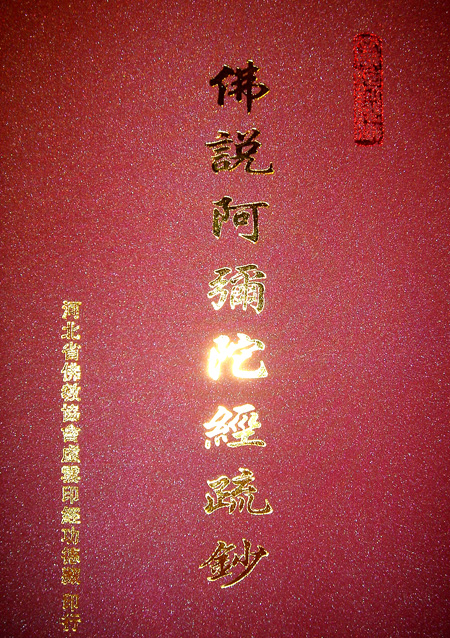 佛說阿彌陀經疏鈔
河北省佛教協會虛雲印經功德藏 印行